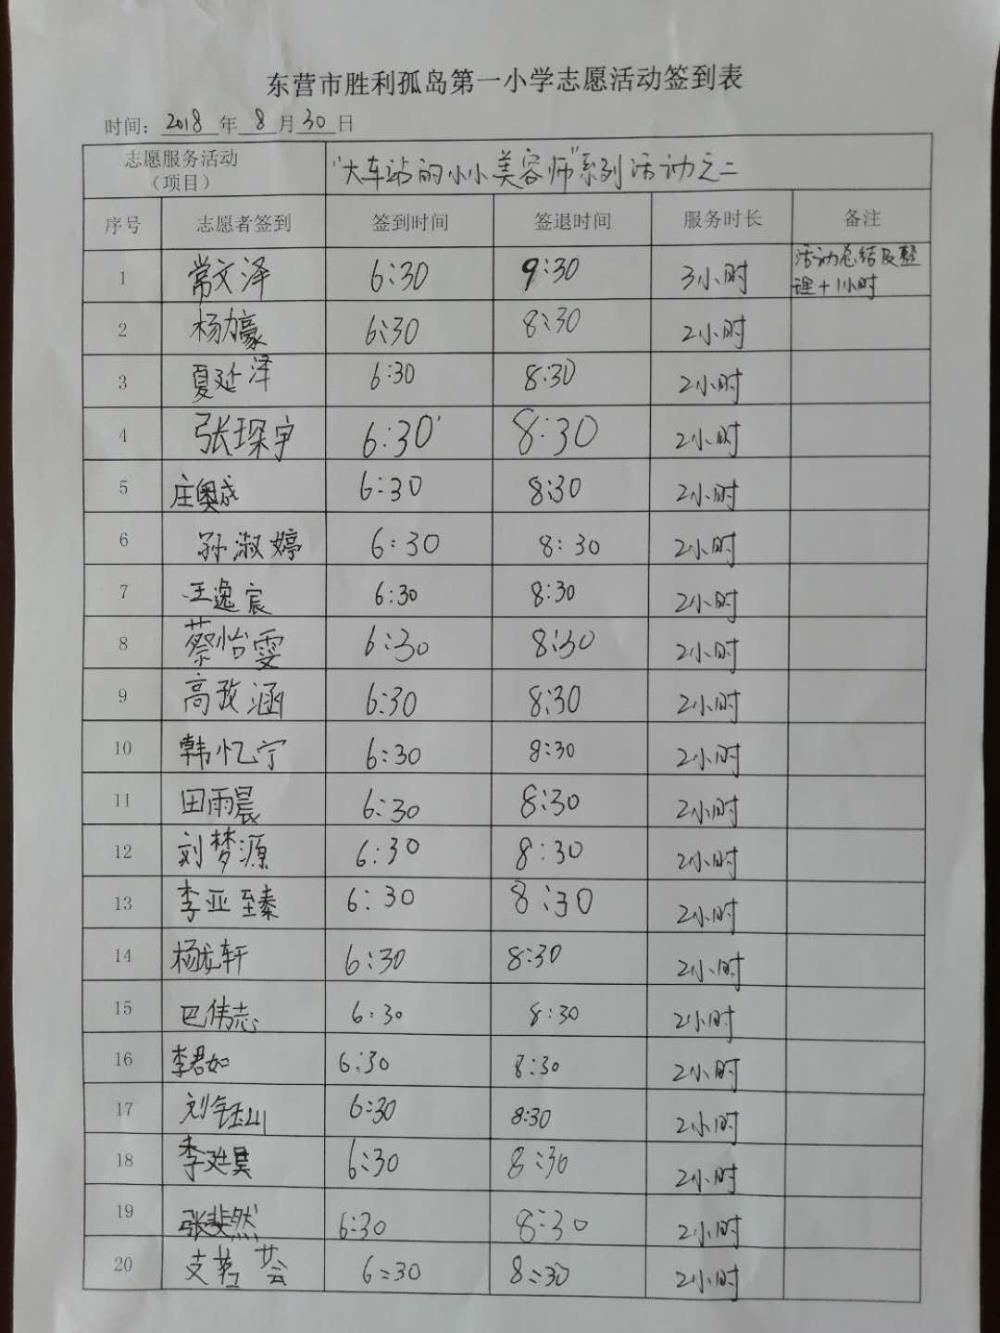 东营市胜利孤岛第一小学志愿活动签到表
时间: 2018 年 8 月 30 日
志愿服务活动（项目） “大车站的小小美容师”系列活动之二
序号 志愿者签到 签到时间 签退时间 服务时长 备注
1 常文泽 6:30 9:30 3小时 活动总结及整理+1小时
2 杨力豪 6:30 8:30 2小时
3 夏延泽 6:30 8:30 2小时
4 张琛宇 6:30 8:30 2小时
5 庄奥成 6:30 8:30 2小时
6 孙淑婷 6:30 8:30 2小时
7 王逸宸 6:30 8:30 2小时
8 蔡怡雯 6:30 8:30 2小时
9 高孜涵 6:30 8:30 2小时
10 韩忆宁 6:30 8:30 2小时
11 田雨晨 6:30 8:30 2小时
12 刘梦源 6:30 8:30 2小时
13 李亚臻 6:30 8:30 2小时
14 杨龙轩 6:30 8:30 2小时
15 巴伟志 6:30 8:30 2小时
16 李君如 6:30 8:30 2小时
17 刘钰山 6:30 8:30 2小时
18 李延昊 6:30 8:30 2小时
19 张斐然 6:30 8:30 2小时
20 支 荟 6:30 8:30 2小时